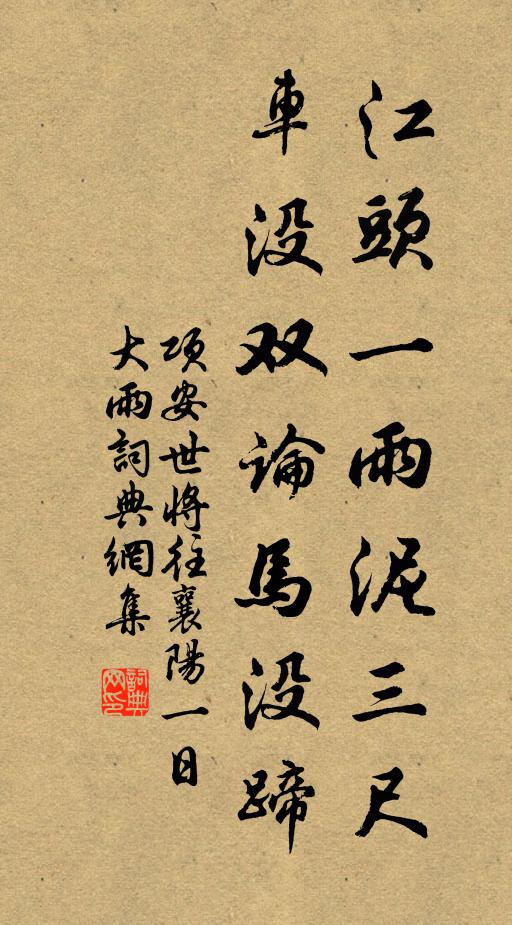 江頭一雨泥三尺
車没双論馬没蹄
项安世将往襄陽一日
大雨詞典網集
詞典
网印